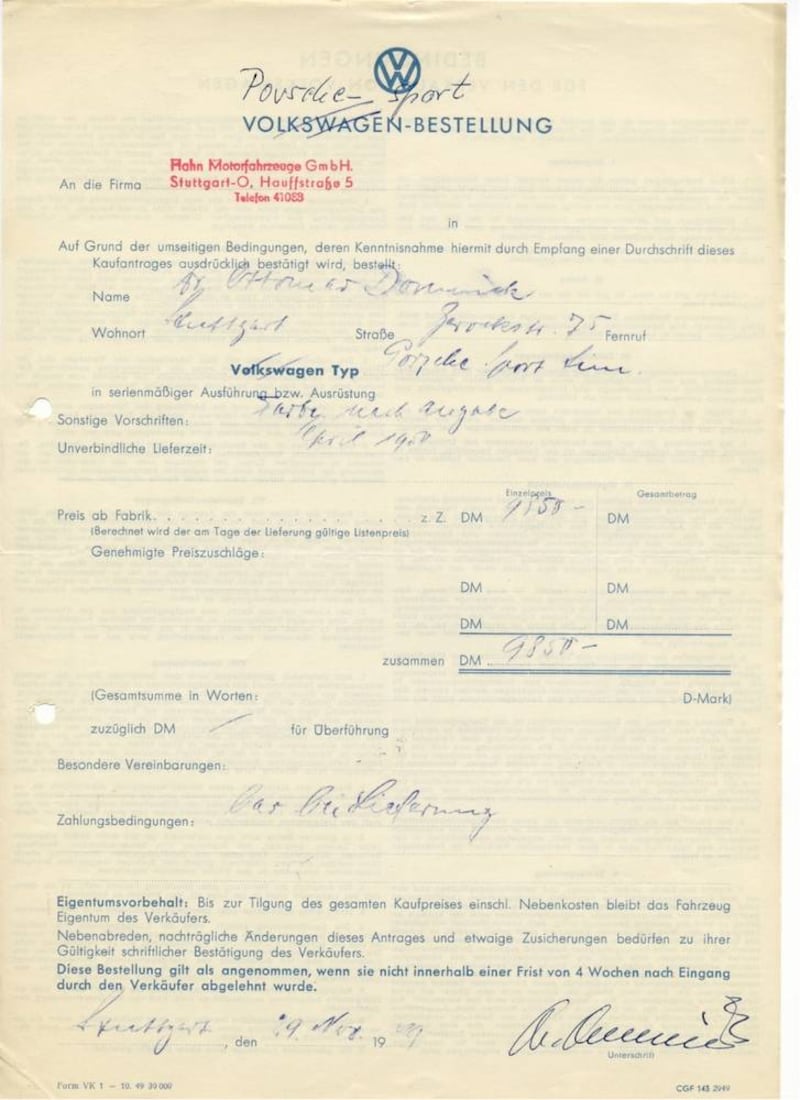 VW
Porsche- Sport
VOLKSWAGEN-BESTELLUNG
An die Firma Hahn Motorfahrzeuge GmbH.
Stuttgart-O, Hauffstraße 5
Telefon 41083
in
Auf Grund der umseitigen Bedingungen, deren Kenntnisnahme hiermit durch Empfang einer Durchschrift dieses
Kaufantrages ausdrücklich bestätigt wird, bestellt:
Name Dr. Ottomar Domnick
Wohnort Stuttgart Straße 75 Fernruf
Volkswagen Typ Porsche Sport Lim.
in serienmäßiger Ausführung bzw. Ausrüstung
Sonstige Vorschriften: Farbe nach Angabe
Unverbindliche Lieferzeit: April 1950
Einzelpreis Gesamtbetrag
Preis ab Fabrik. . . . . . . . . . . . . . . z. Z. DM 9850- DM
(Berechnet wird der am Tage der Lieferung gültige Listenpreis)
Genehmigte Preiszuschläge:
DM DM
DM DM
zusammen DM 9850-
(Gesamtsumme in Worten: D-Mark)
zuzüglich DM für Überführung
Besondere Vereinbarungen:
Zahlungsbedingungen: bar bei Lieferung
Eigentumsvorbehalt: Bis zur Tilgung des gesamten Kaufpreises einschl. Nebenkosten bleibt das Fahrzeug
Eigentum des Verkäufers.
Nebenabreden, nachträgliche Änderungen dieses Antrages und etwaige Zusicherungen bedürfen zu ihrer
Gültigkeit schriftlicher Bestätigung des Verkäufers.
Diese Bestellung gilt als angenommen, wenn sie nicht innerhalb einer Frist von 4 Wochen nach Eingang
durch den Verkäufer abgelehnt wurde.
Stuttgart, den 29 Nov. 1949
Unterschrift
Form VK 1 – 10. 49 30 000 CGF 143 2949